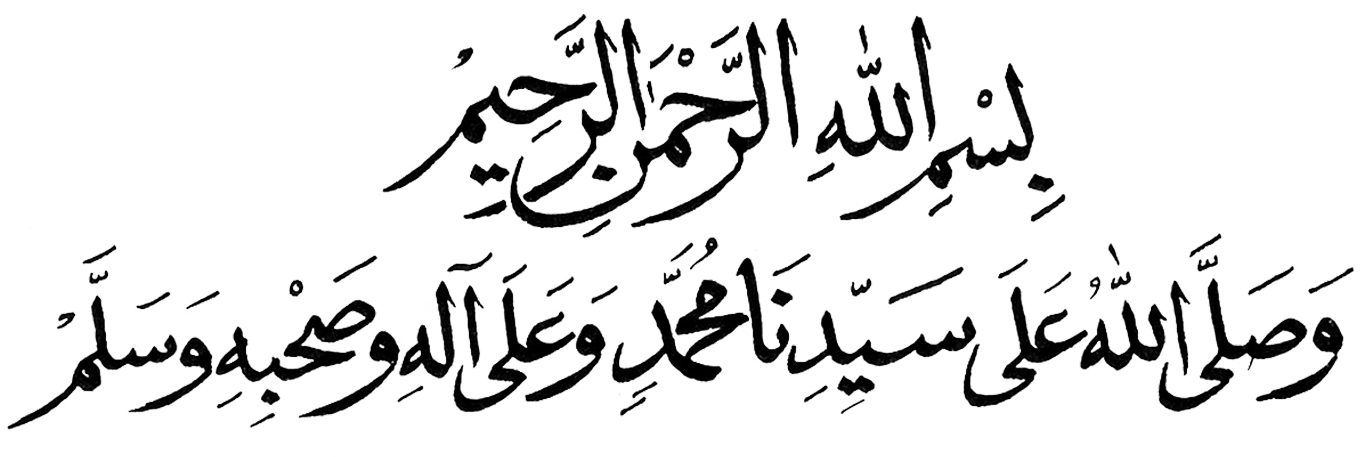 بِسْمِ اللهِ الرَّحْمَنِ الرَّحِيمُ
وَصَلَّى اللهُ عَلَى سَيِّدِنَا مُحَمَّدٍ وَعَلَى آلِهِ وَصَحْبِهِ وَسَلَّمُ